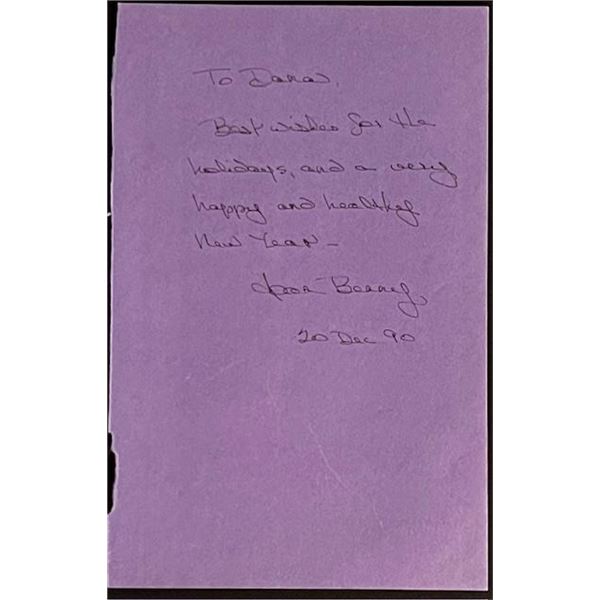 To Dana,
Best wishes for the
holidays, and a very
happy and healthy
New Year –
20 Dec 90